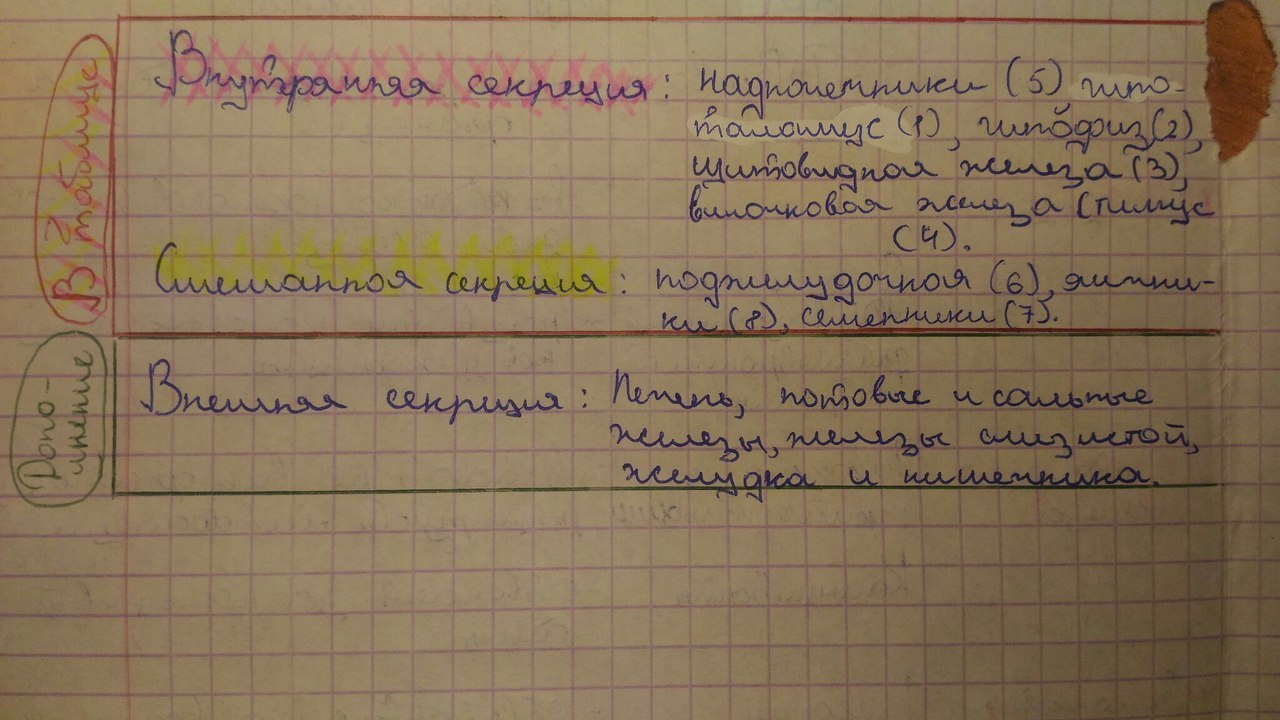 В таблице
Внутрянняя секреция: надпочетники (5) гипо-
таламус (1), гипофиз (2),
щитовидная железа (3),
вилочковая железа (тимус
(4).
Смешанная секреция: поджилудочная (6), яични-
ки (8), семенники (7).
Допо-
лнение
Внешняя секреция: Печень, потовые и сальные
железы, железы слизистой,
желудка и кишечника.